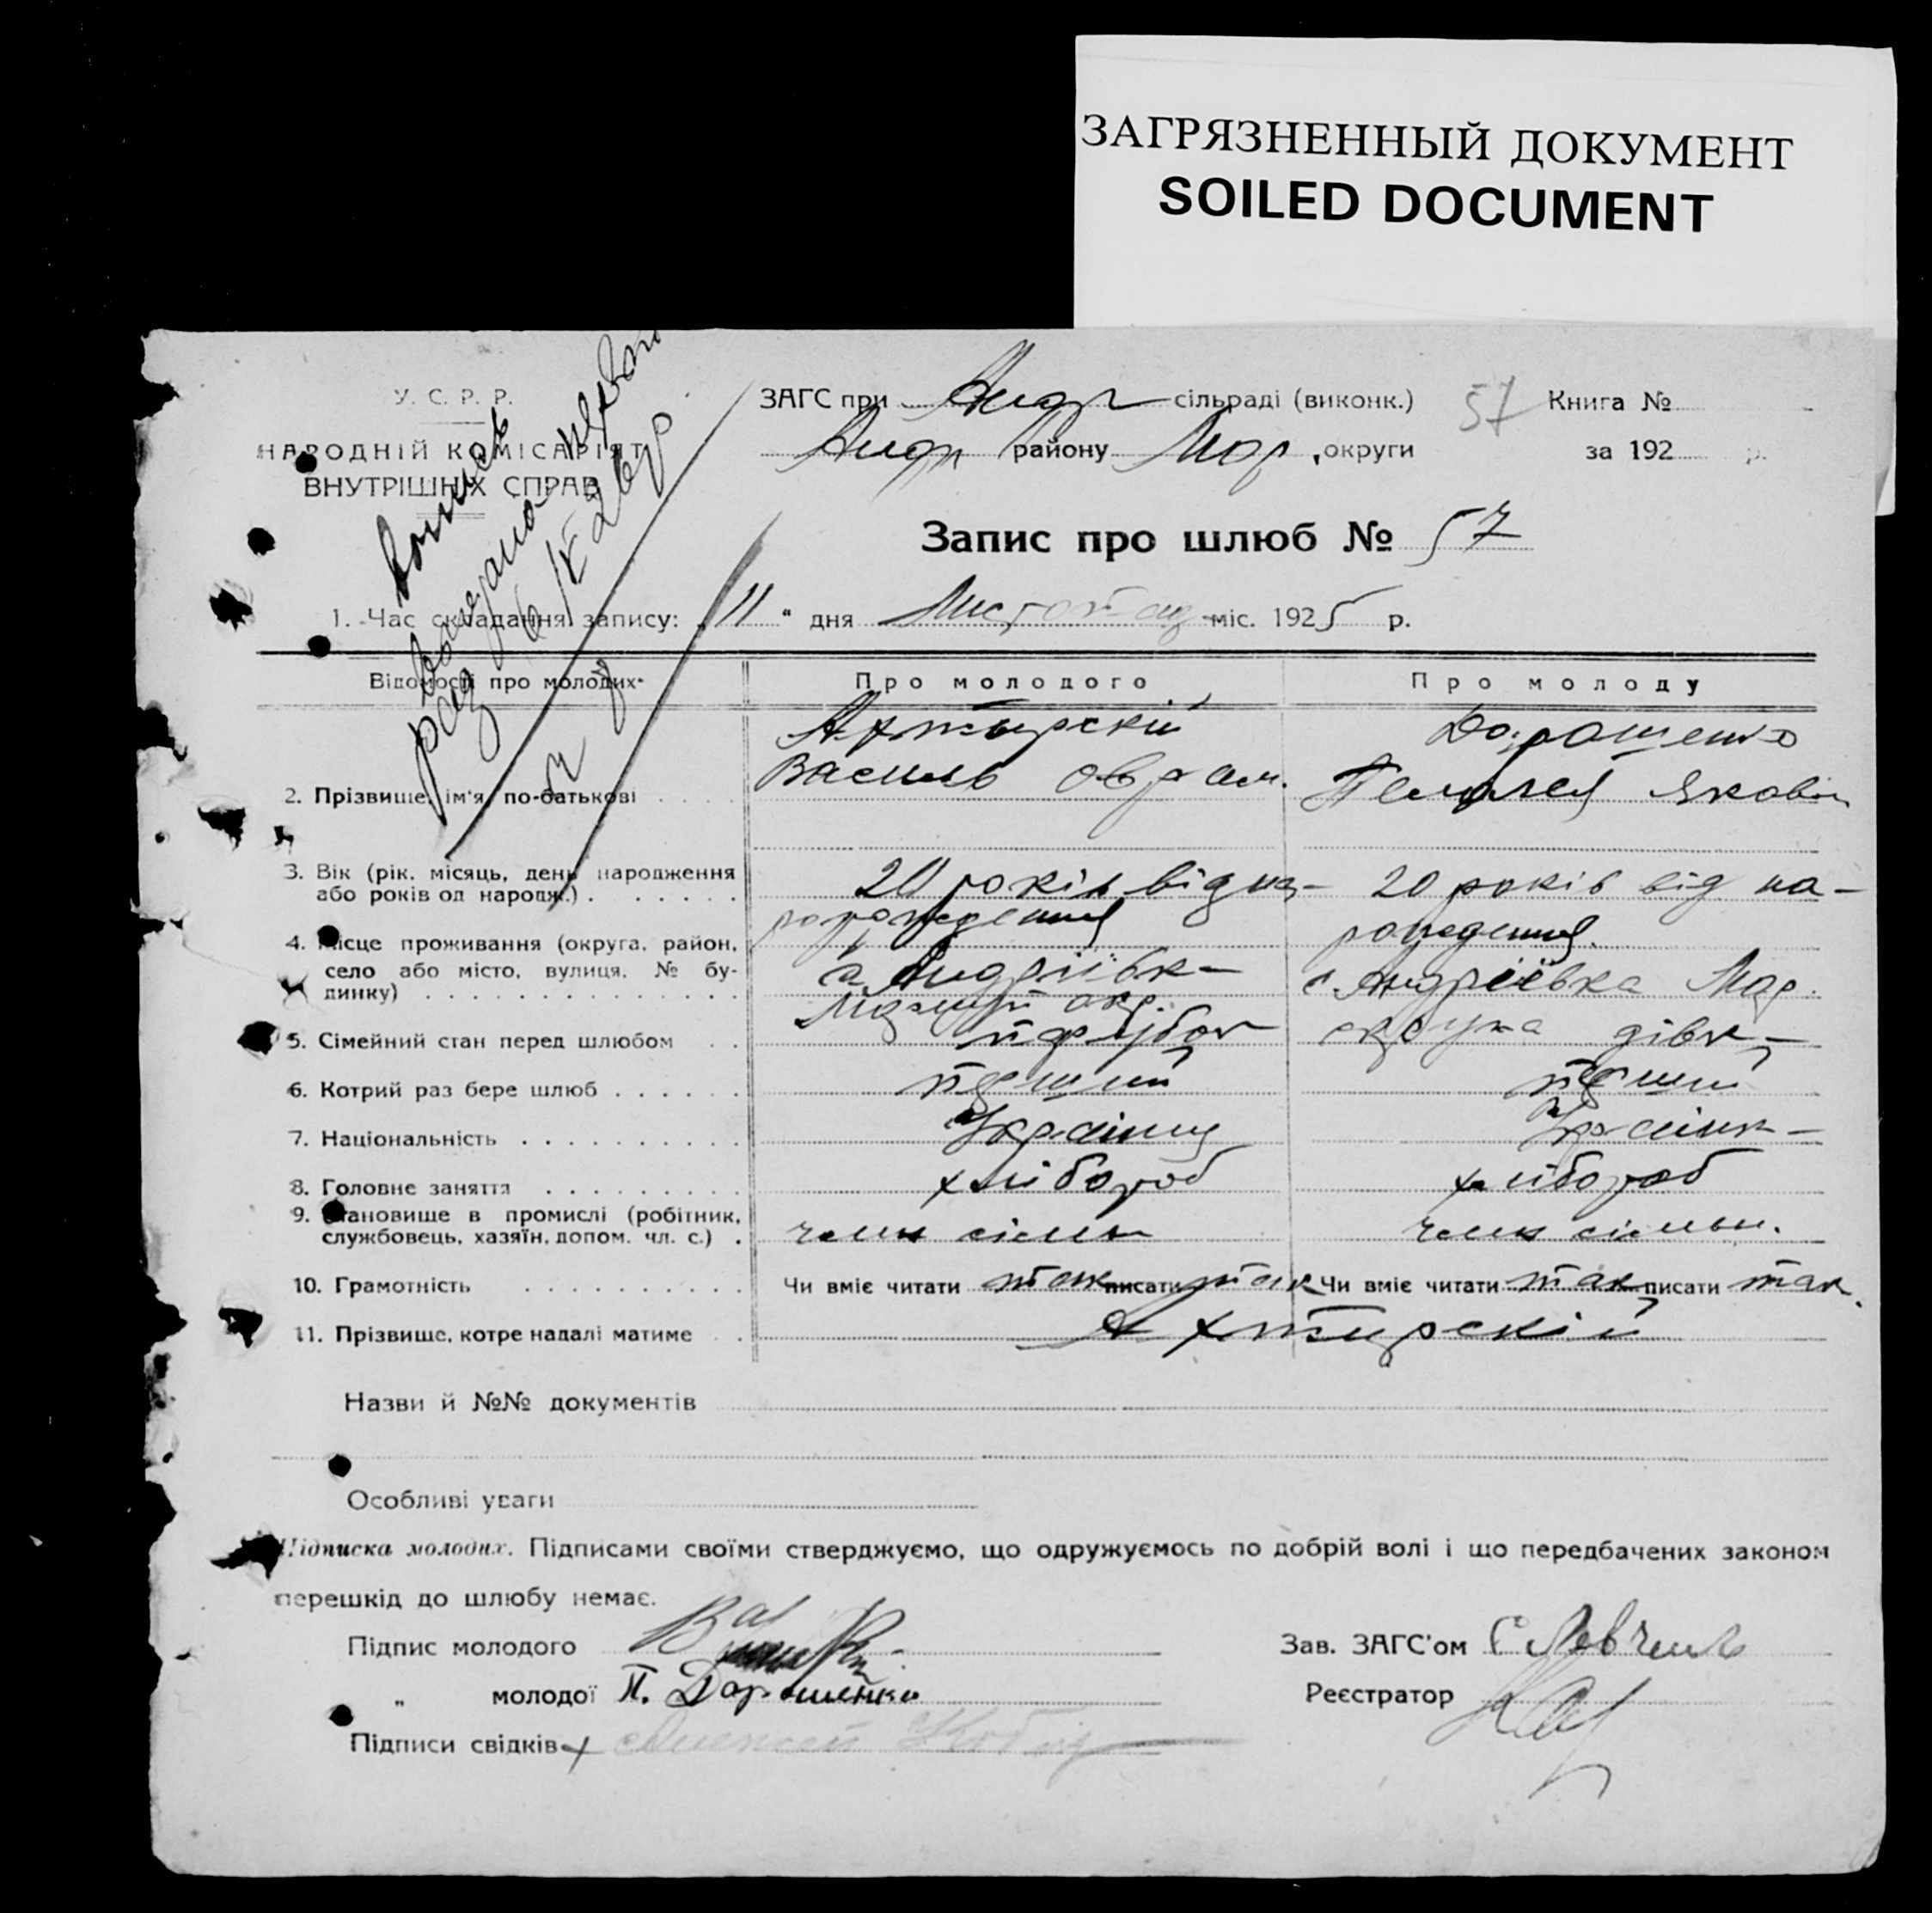 ЗАГРЯЗНЕННЫЙ ДОКУМЕНТ
SOILED DOCUMENT
У. С. Р. Р.
НАРОДНІЙ КОМІСАРІЯТ
ВНУТРІШНІХ СПРАВ
ЗАГС при Андр сільраді (виконк.) 57 Книга №
Андр району Мар округи за 192 р.
Запис про шлюб № 57
1. Час складання запису: „11“ дня Листопад міс. 1925 р.
Відомості про молодих Про молодого Про молоду
Ахтырскій Дорошенко
2. Прізвище, ім'я, по-батькові Василь Яковл
3. Вік (рік, місяць, день народження 20 років від на- 20 років від на-
або років од народж.) рождения.
4. Місце проживання (округа, район, с. Андріівк с. Андріівка Мар.
село або місто, вулиця, № бу-
динку) окр.
5. Сімейний стан перед шлюбом парубок округа дівк
6. Котрий раз бере шлюб перший перший
7. Національність Українец Українк
8. Головне заняття хлібороб хлібороб
9. Становище в промислі (робітник, член сімьи член сімьи.
службовець, хазяїн, допом. чл. с.)
10. Грамотність Чи вміє читати так писати так Чи вміє читати так писати так.
11. Прізвище, котре надалі матиме Ахтирскій
Назви й №№ документів
Особливі уваги
Підписка молодих. Підписами своїми стверджуємо, що одружуємось по добрій волі і що передбачених законом
перешкід до шлюбу немає.
Підпис молодого Зав. ЗАГС'ом
„ молодої П. Дорошенко Реєстратор
Підписи свідків